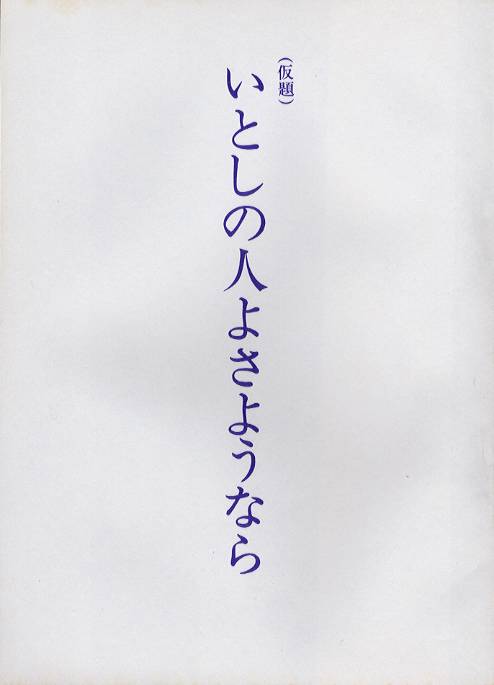 (仮題)
いとしの人よさようなら